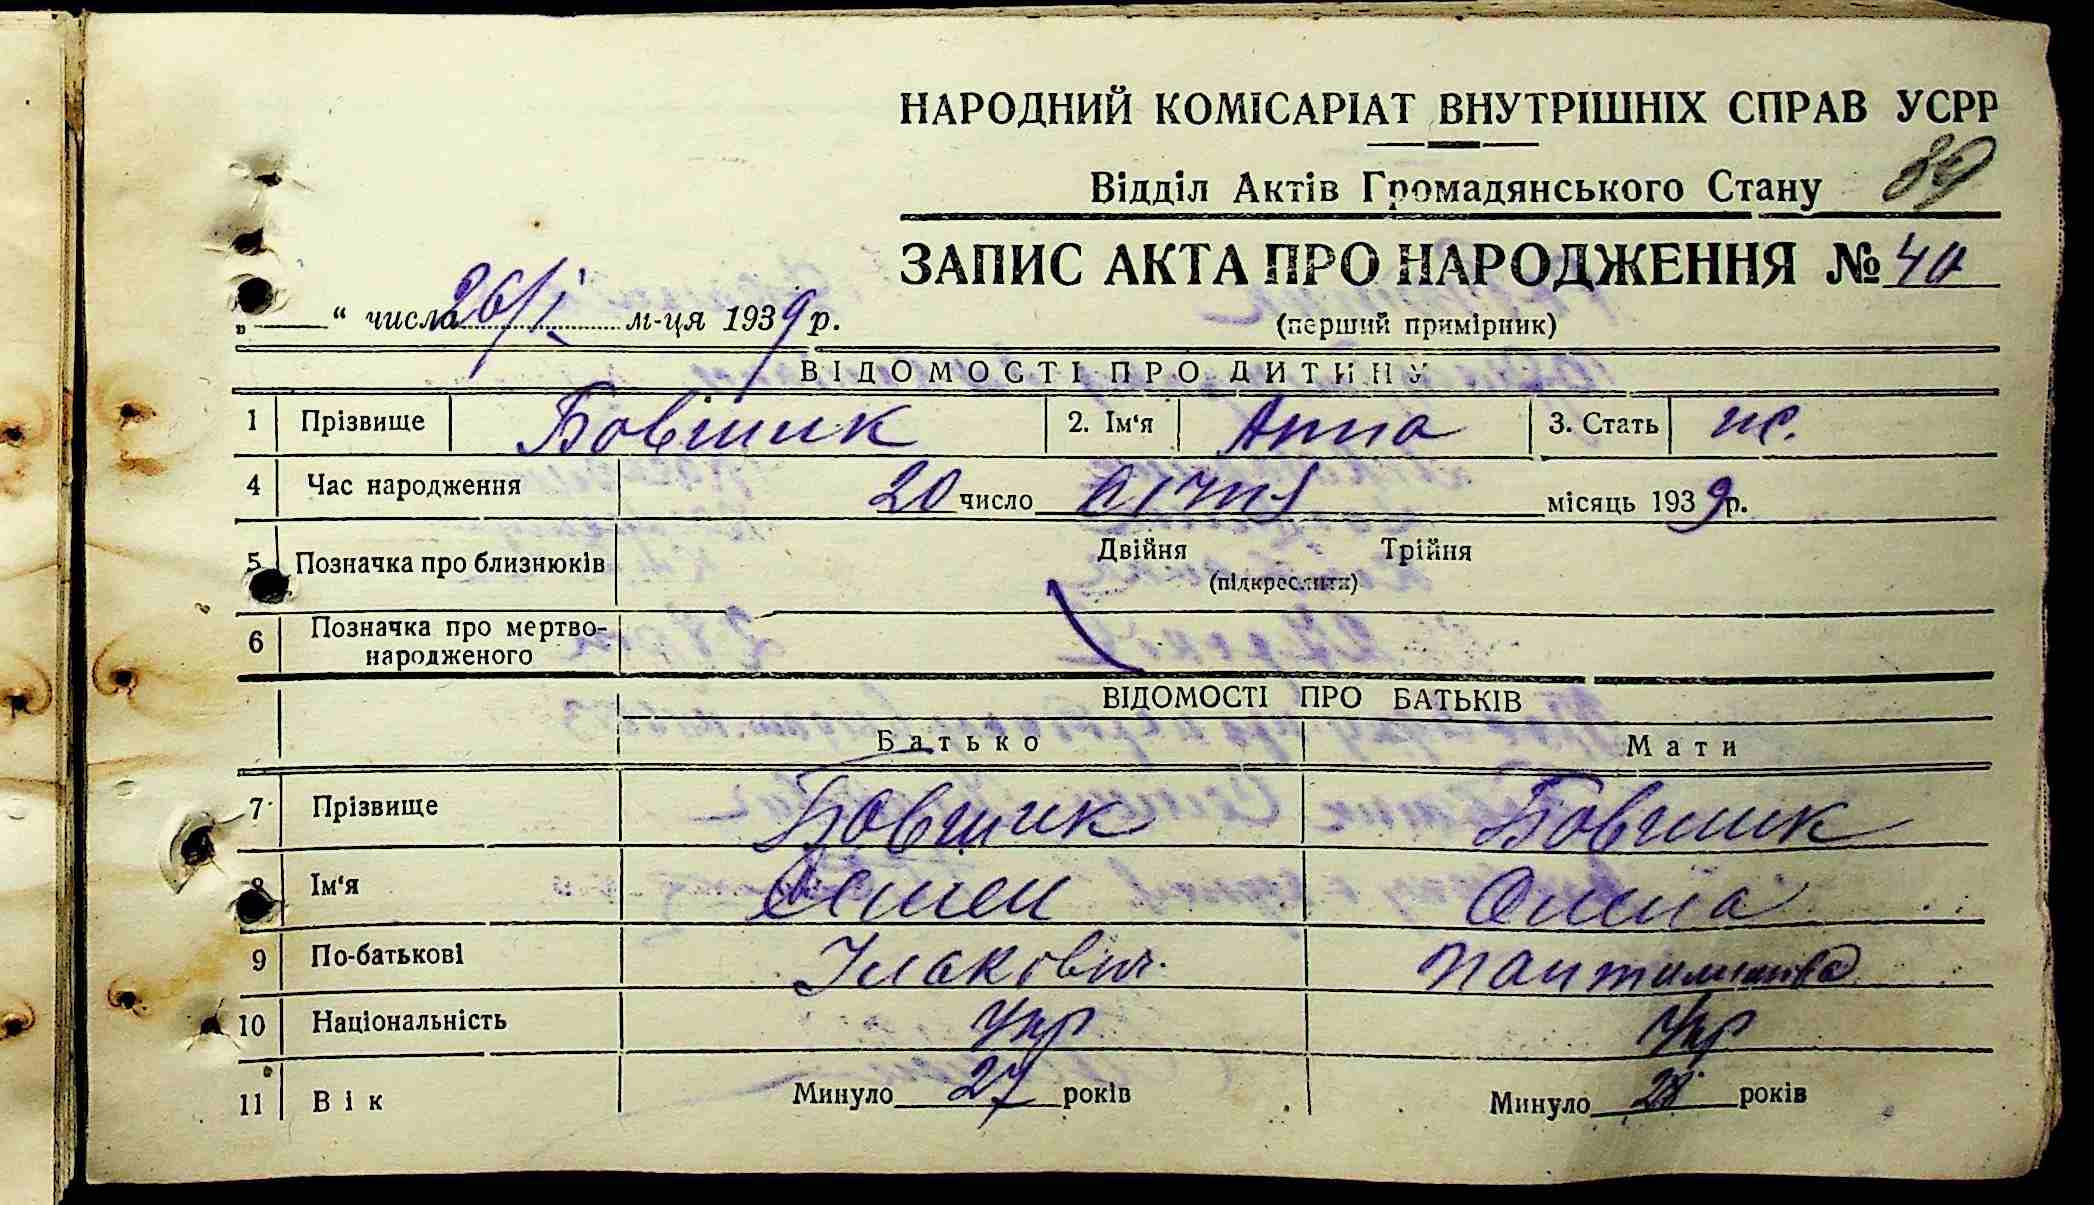 НАРОДНИЙ КОМІСАРІАТ ВНУТРІШНІХ СПРАВ УСРР
Відділ Актів Громадянського Стану 89
ЗАПИС АКТА ПРО НАРОДЖЕННЯ № 40
„ “ числа 26/I м-ця 1939 р.
(перший примірник)
ВІДОМОСТІ ПРО ДИТИНУ
1 Прізвище Бовшик 2. Ім‘я Анна 3. Стать ж.
4 Час народження 20 число січня місяць 1939 р.
5 Позначка про близнюків Двійня Трійня
(підкреслити)
6 Позначка про мертво-
народженого
ВІДОМОСТІ ПРО БАТЬКІВ
Батько Мати
7 Прізвище Бовшик Бовшик
8 Ім‘я Семен Олена
9 По-батькові Ісакович
10 Національність Укр Укр
11 Вік Минуло 27 років Минуло 28 років